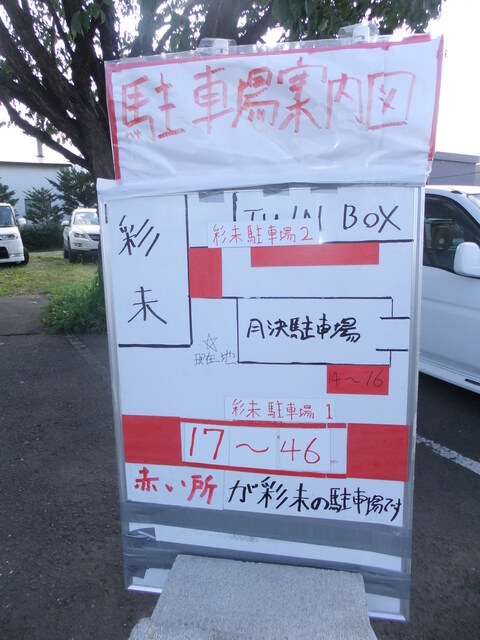 駐車場案内図
TWIN BOX
彩未
彩未駐車場2
月決駐車場
☆
現在地
14〜16
彩未駐車場1
17〜46
赤い所が彩未の駐車場です